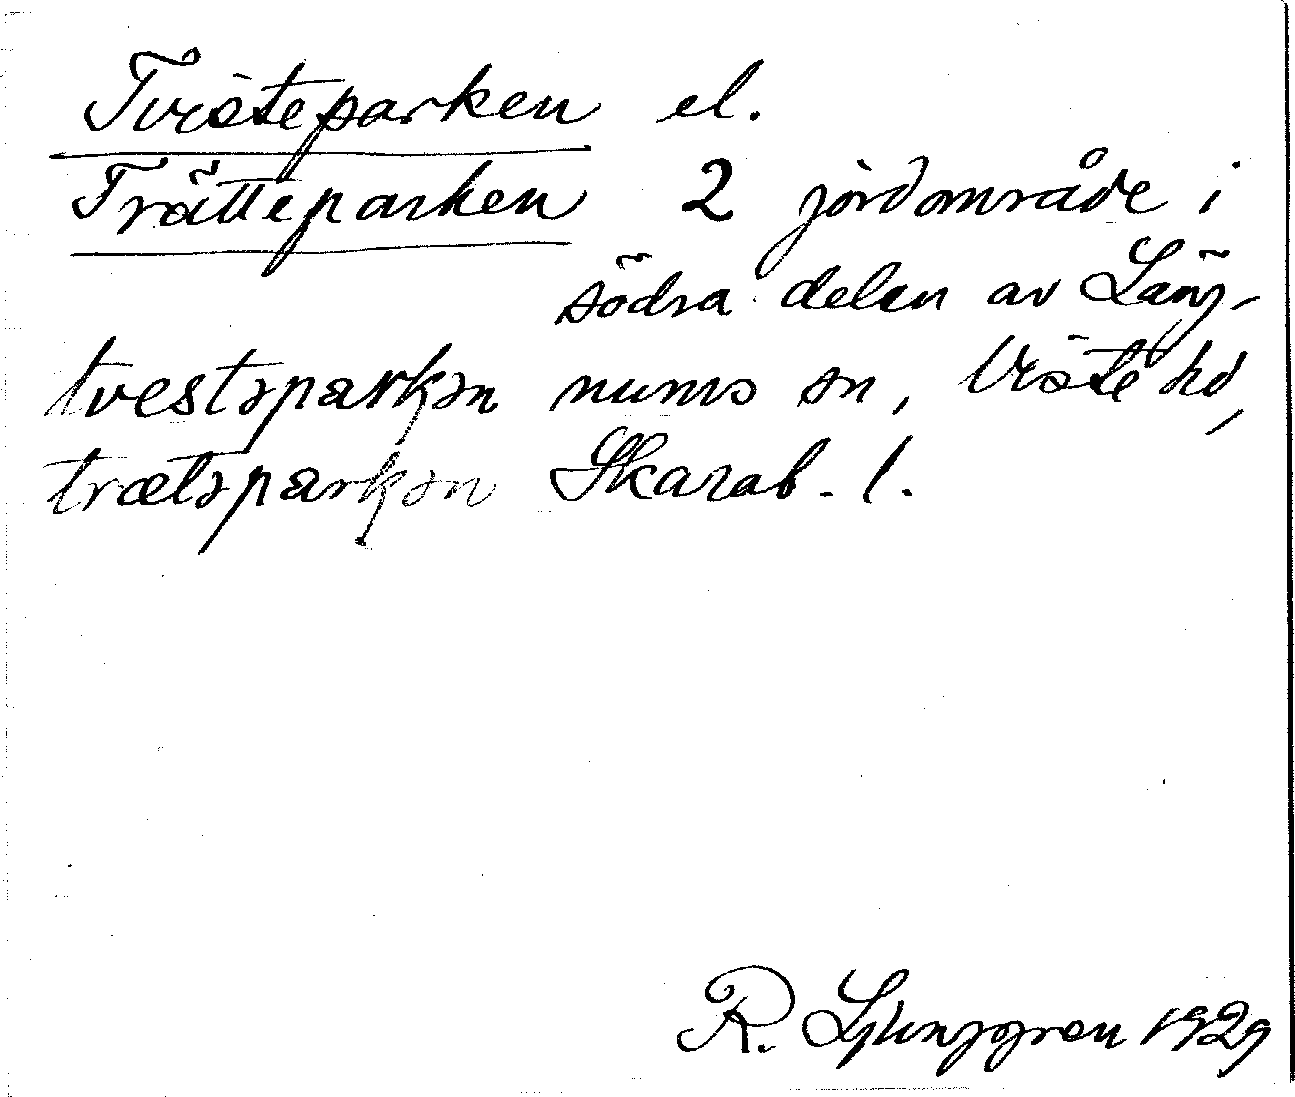 Tvisteparken el.
Trätteparken 2 jordområde i
södra delen av Läng-
tvestəparkən nums sn, Viste hd,
trætəparkən Skarab. l.
R. Ljunggren 1929